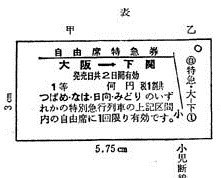 表
甲 乙
自由席特急券
大阪→下関
発売日共2日間有効
1等 何円 税1割共
つばめ・なは・日向・みどりのいず
れかの特別急行列車の上記区間
内の自由席に1回限り有効です。
小
特急・大・下①
3cm
5.75cm
小児断線